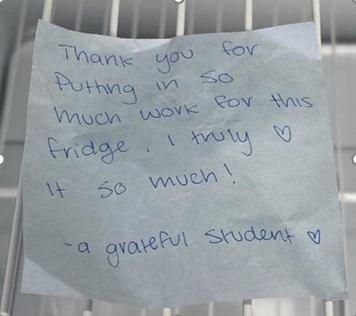 Thank you for
Putting in so
much work for this
fridge. I truly ♡
it so much!
-a grateful student ♡